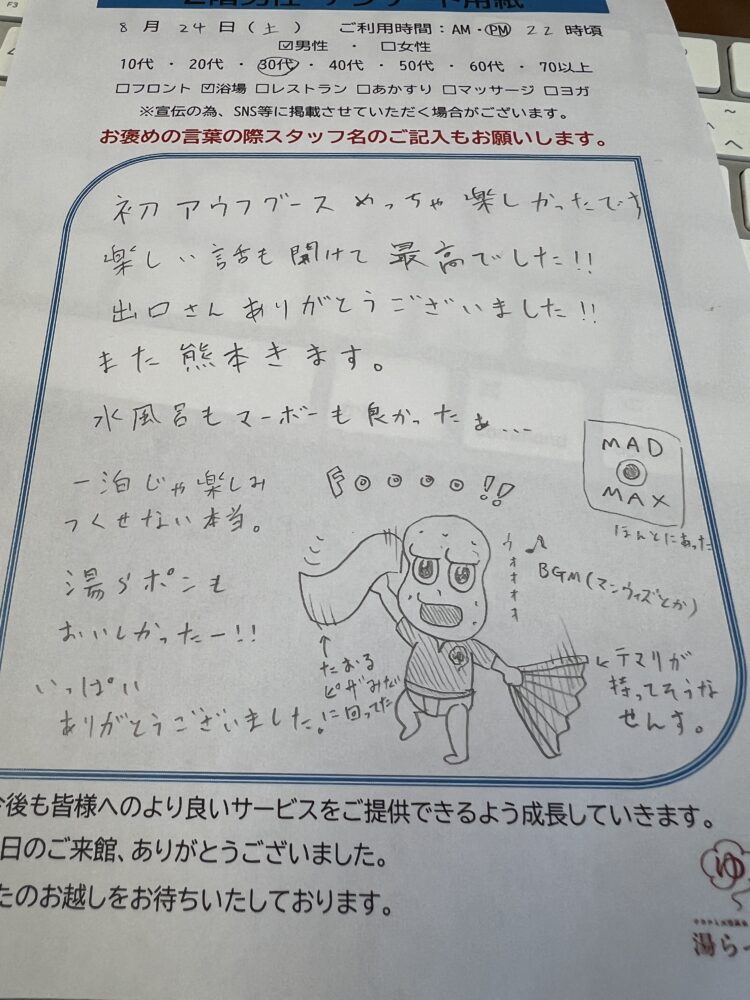 2階男性 アンケート用紙
8月24日(土) ご利用時間:AM・PM 22時頃
☑男性 ・ □女性
10代 ・ 20代 ・ 30代 ・ 40代 ・ 50代 ・ 60代 ・ 70以上
□フロント ☑浴場 □レストラン □あかすり □マッサージ □ヨガ
※宣伝の為、SNS等に掲載させていただく場合がございます。
お褒めの言葉の際スタッフ名のご記入もお願いします。
初アウフグース めっちゃ楽しかったです
楽しい話も聞けて最高でした!!
出口さんありがとうございました!!
また熊本きます。
水風呂もマーボーも良かったぁ...
一泊じゃ楽しみ
つくせない本当。
湯らポンも
おいしかったー!!
いっぱい
ありがとうございました。
!!
MAD
MAX
ほんとにあった
ウォォォォ
♪
BGM(マンウィズとか)
↑
たおる
ピザみたい
に回ってた
←テマリが
持ってそうな
せんす。
今後も皆様へのより良いサービスをご提供できるよう成長していきます。
日のご来館、ありがとうございました。
たのお越しをお待ちいたしております。
ゆ
湯らっ